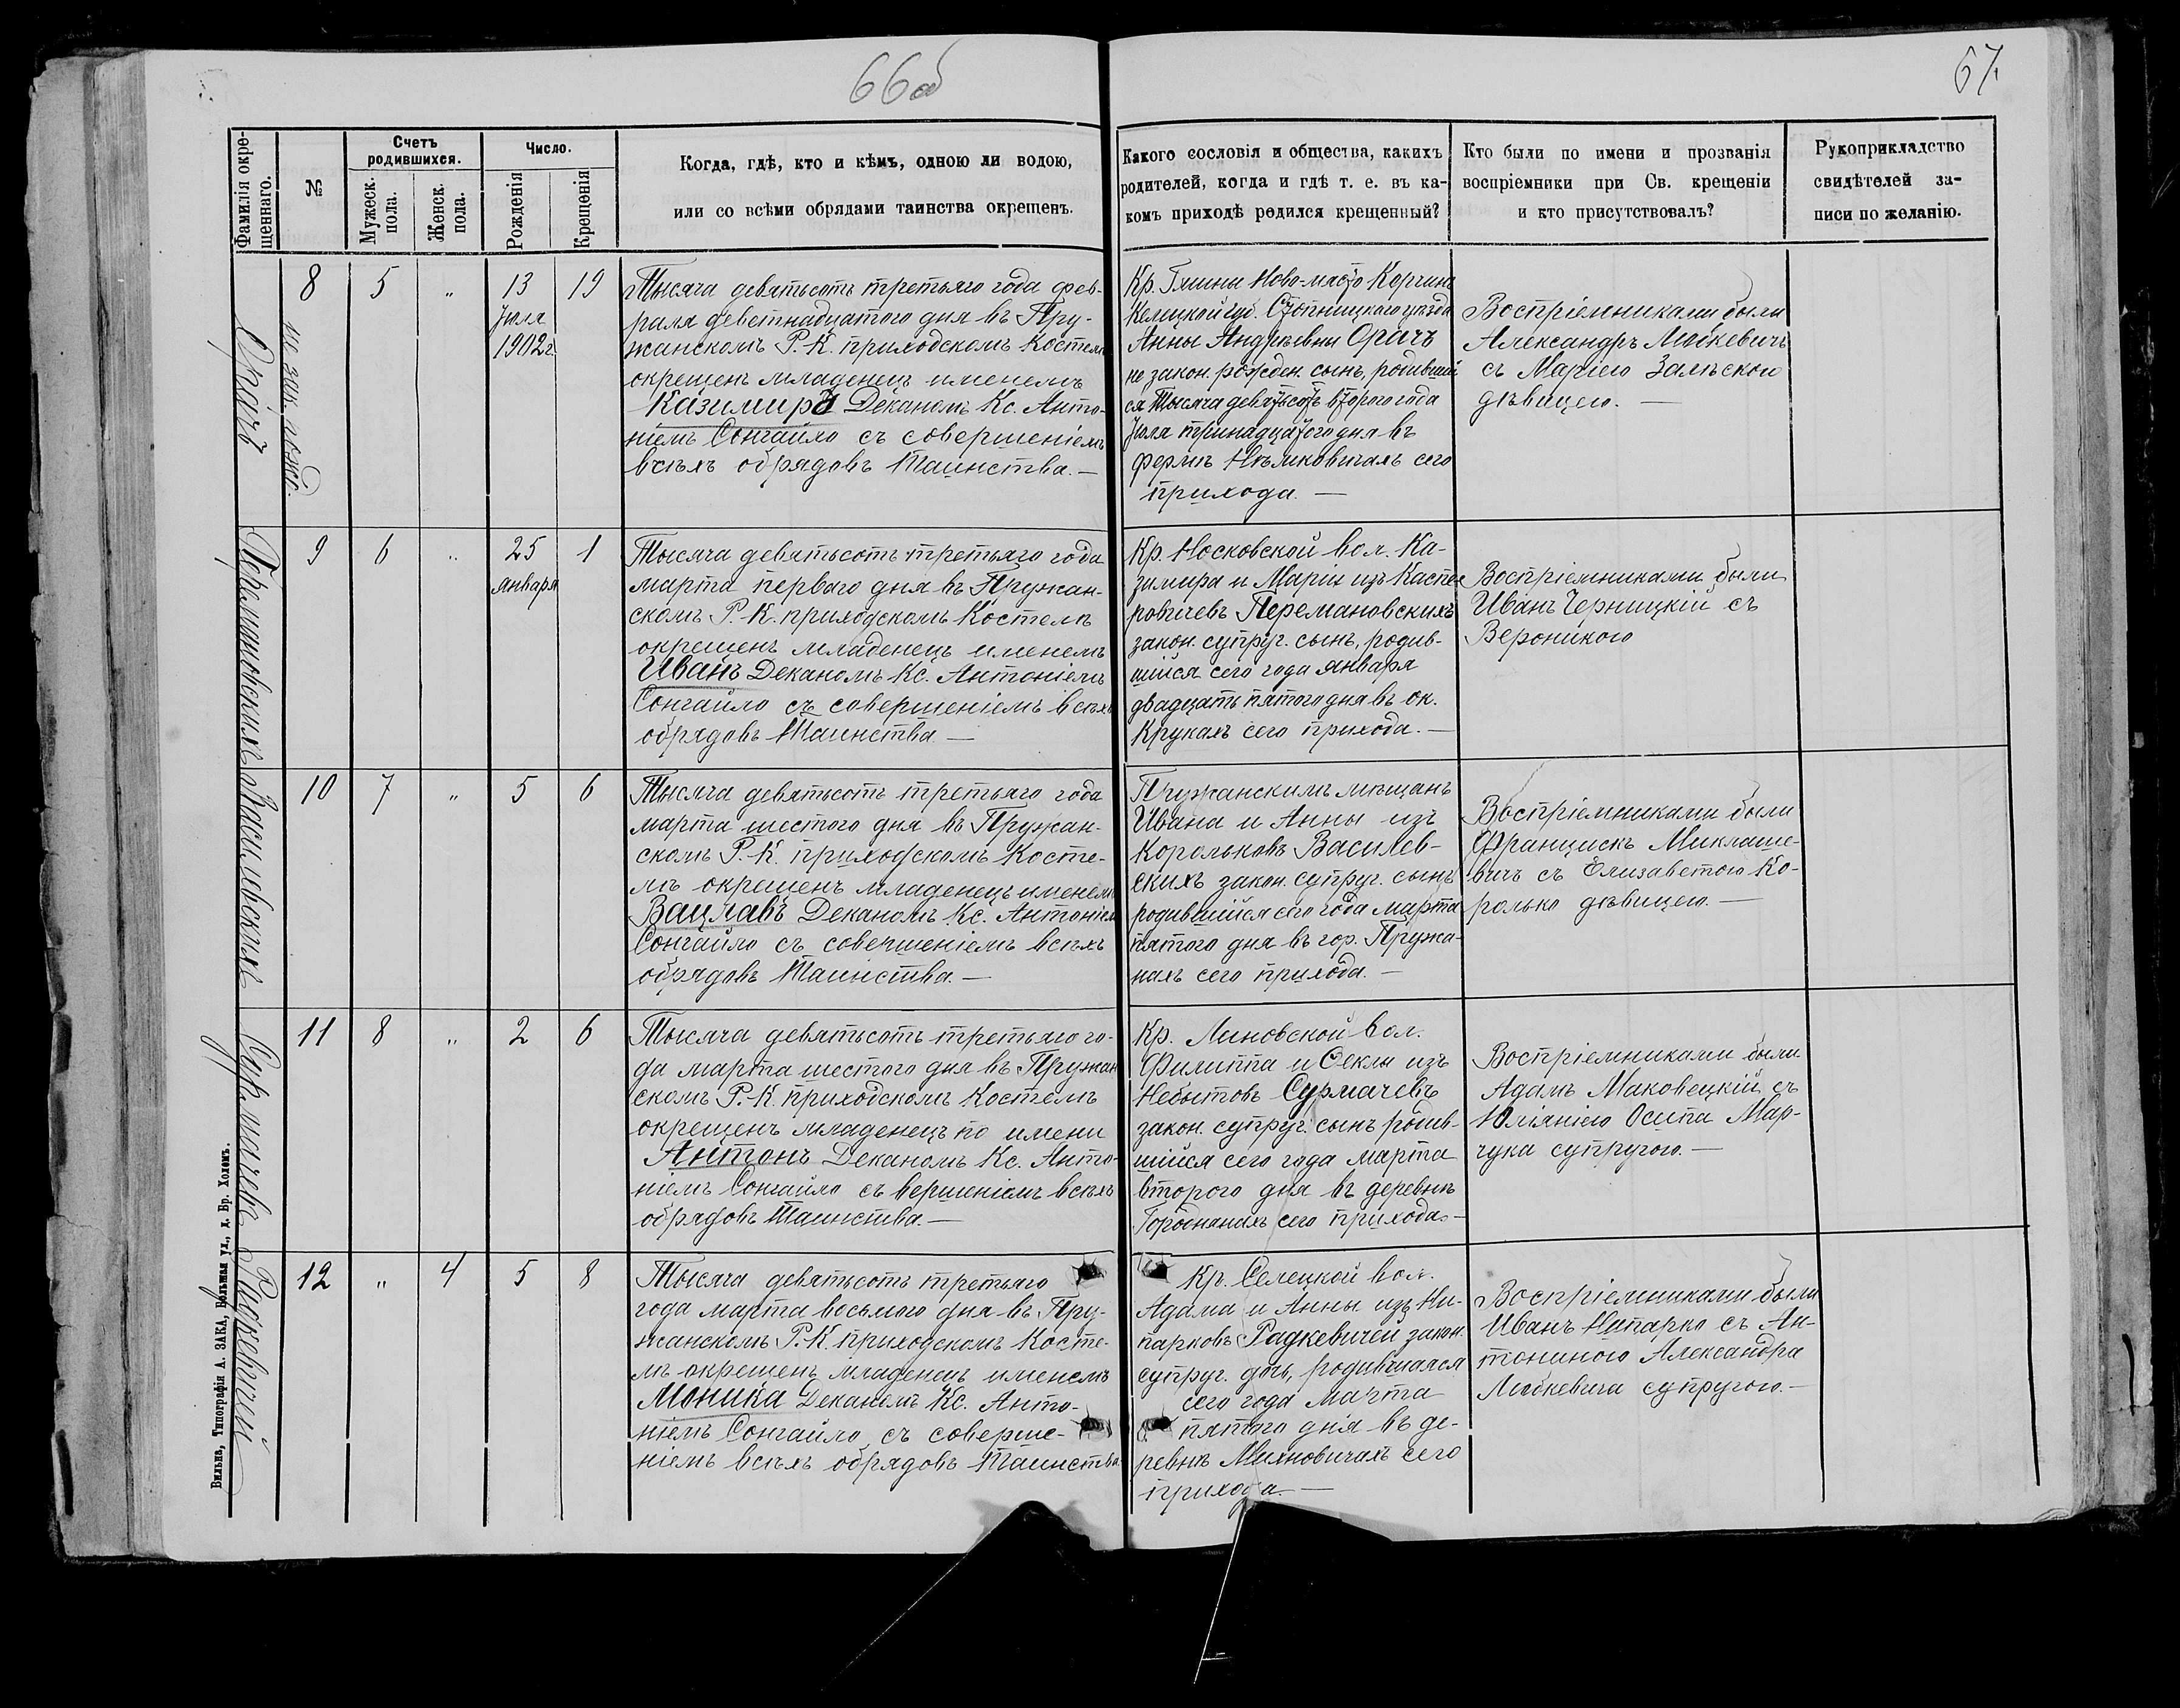 66об
67.
Фамилія окре-
щеннаго.
№
Счетъ
родившихся.
Мужеск.
пола.
Женск.
пола.
Число.
Рожденія
Крещенія
Когда, гдѣ, кто и кѣмъ, одною ли водою,
или со всѣми обрядами таинства окрещенъ.
Какого сословія и общества, какихъ
родителей, когда и гдѣ т. е. въ ка-
комъ приходѣ родился крещенный?
Кто были по имени и прозванія
воспріемники при Св. крещеніи
и кто присутствовалъ?
Рукоприкладство
свидѣтелей за-
писи по желанію.
Орачъ
8
5
"
13
Іюля
1902г.
19
Тысяча девятьсотъ третьяго года фев-
раля девятнадцатого дня въ Пру-
жанскомъ Р.-К. приходскомъ Костелѣ
окрещенъ младенецъ именемъ
Казимиръ Деканомъ Кс. Анто-
ніемъ Сонгайло съ совершеніемъ
всѣхъ обрядовъ Таинства. —
Кр. Гмины Ново-място Корчина
Келецкой губ. Стопницкаго уѣзда
Анны Андреевны Орачъ
не закон. рожден. сынъ, родившій
ся Тысяча девятьсотъ второго года
Іюля тринадцатого дня въ
фермѣ
сего
прихода. —
Воспріемниками были
Александръ
съ Маріею Залѣскою
дѣвицею. —
Перемановскихъ
9
6
"
25
января
1
Тысяча девятьсотъ третьяго года
марта перваго дня въ Пружан-
скомъ Р.-К. приходскомъ Костелѣ
окрещенъ младенецъ именемъ
Иванъ Деканомъ Кс. Антоніемъ
Сонгайло съ совершеніемъ всѣхъ
обрядовъ Таинства —
Кр. Носковской вол. Ка-
зимира и Маріи изъ Каспе-
ровичевъ Перемановскихъ
закон. супруг. сынъ, родив-
шійся сего года января
двадцать пятого дня въ ок.
Крукахъ сего прихода. —
Воспріемниками были
Иванъ Черницкій съ
Вероникою
Василевскихъ
10
7
"
5
6
Тысяча девятьсотъ третьяго года
марта шестого дня въ Пружан-
скомъ Р.-К. приходскомъ Косте-
лѣ окрещенъ младенецъ именемъ
Вацлавъ Деканомъ Кс. Антоніемъ
Сонгайло съ совершеніемъ всѣхъ
обрядовъ Таинства. —
Пружанскимъ мѣщанъ
Ивана и Анны изъ
Корольковъ Василев-
скихъ закон. супруг. сынъ
родившійся сего года марта
пятого дня въ гор. Пружа-
нахъ сего прихода. —
Воспріемниками были
Францискъ Миклаше-
вичъ съ Елизаветою Ко-
ролько дѣвицею. —
Сурмачевъ
11
8
"
2
6
Тысяча девятьсотъ третьяго го-
да марта шестого дня въ Пружан
скомъ Р.-К. приходскомъ Костелѣ
окрещенъ младенецъ по имени
Антонъ Деканомъ Кс. Анто-
ніемъ Сонгайло съ вершеніемъ всѣхъ
обрядовъ Таинства. —
Кр. Линовской вол.
Филиппа и Ѳеклы изъ
Небытовъ Сурмачевъ
закон. супруг. сынъ родив-
шійся сего года марта
второго дня въ деревнѣ
сего прихода. —
Воспріемниками были
Адамъ Маковецкій съ
Юліяніею Осипа Мар-
чука супругою. —
Радкевичей
12
"
4
5
8
Тысяча девятьсотъ третьяго
года марта восьмого дня въ Пру-
жанскомъ Р.-К. приходскомъ Косте-
лѣ окрещенъ младенецъ именемъ
Моника Деканомъ Кс. Анто-
ніемъ Сонгайло съ соверше-
ніемъ всѣхъ обрядовъ Таинства
Кр. Селецкой вол.
Адама и Анны изъ Ни-
парковъ Радкевичей закон.
супруг. дочь, родившаяся
сего года Марта
пятого дня въ де-
ревнѣ Михновичахъ сего
прихода. —
Воспріемниками были
Иванъ Нипарко съ Ан-
тониною Александра
супругою. —
Вильна, Типографія А. ЗАКА, Большая ул., д. Бр. Холемъ.